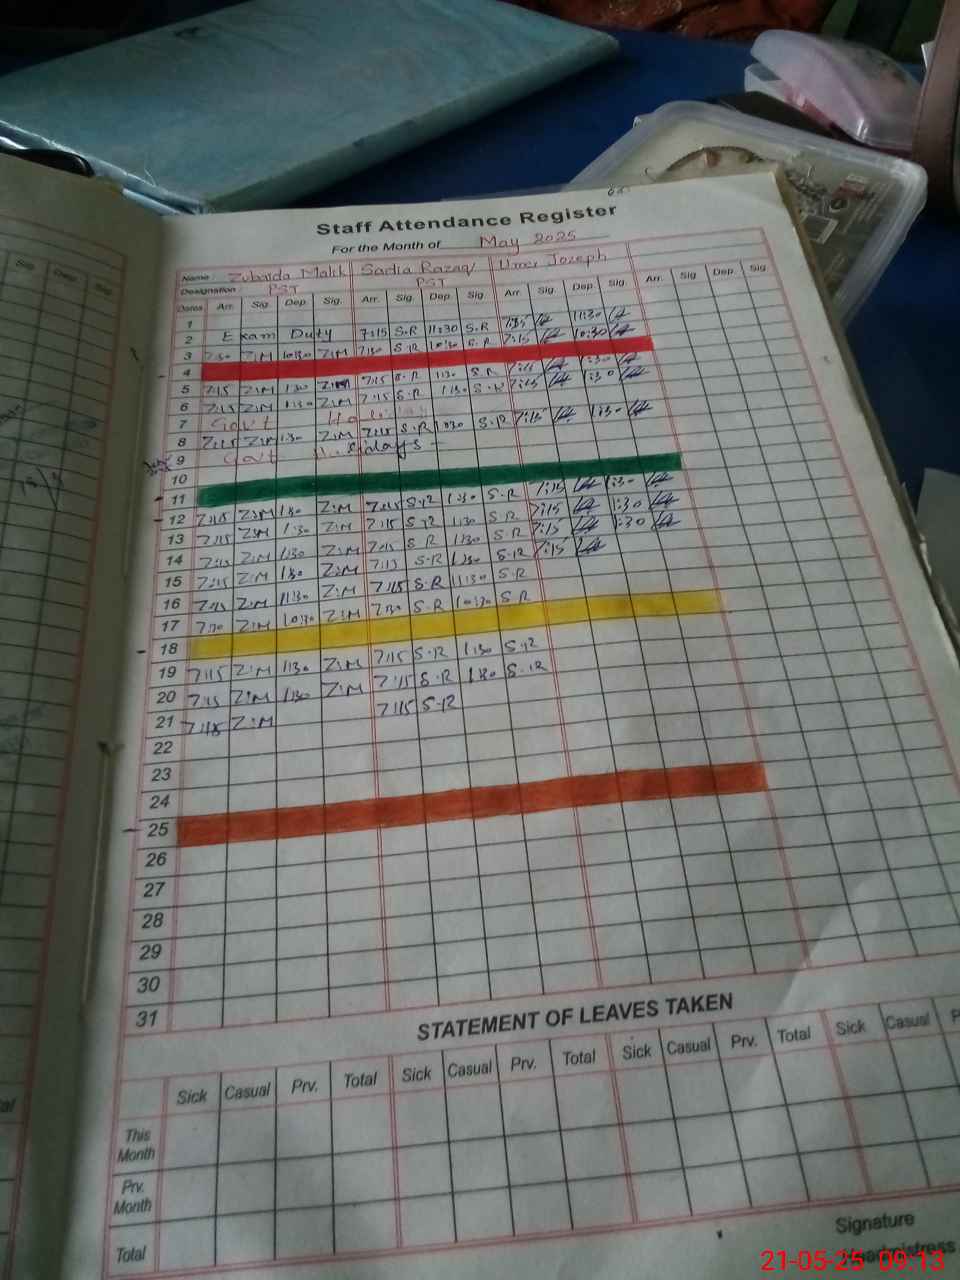 Staff Attendance Register
For the Month of May 2025
Name : Zubaida Malik Sadia Razaq Umer Jozeph
Designation : PST PST
Dates Arr. Sig. Dep. Sig. Arr. Sig. Dep. Sig. Arr. Sig. Dep. Sig. Arr. Sig. Dep. Sig.
1
2 Exam Duty 7:15 S.R 11:30 S.R 7:15 11:30
3 7:30 Z.M 10:30 Z.M 7:30 S.R 10:30 S.R 7:15 10:30
4
5 7:15 Z.M 1:30 Z.M 7:15 S.R 1:30 S.R 7:15 1:30
6 7:15 Z.M 1:30 Z.M 7:15 S.R 1:30 S.R 7:15 1:30
7 Gov't
8 7:15 Z.M 1:30 Z.M 7:15 S.R 1:30 S.R 7:15 1:30
9
10
11
12 7:15 Z.M 1:30 Z.M 7:15 S.R 1:30 S.R 7:15 1:30
13 7:15 Z.M 1:30 Z.M 7:15 S.R 1:30 S.R 7:15 1:30
14 7:15 Z.M 1:30 Z.M 7:15 S.R 1:30 S.R 7:15 1:30
15 7:15 Z.M 1:30 Z.M 7:15 S.R 1:30 S.R 7:15
16 7:15 Z.M 11:30 Z.M 7:15 S.R 11:30 S.R
17 7:30 Z.M 10:30 Z.M 7:30 S.R 10:30 S.R
18
19 7:15 Z.M 1:30 Z.M 7:15 S.R 1:30 S.R
20 7:15 Z.M 1:30 Z.M 7:15 S.R 1:30 S.R
21 7:15 Z.M 7:15 S.R
22
23
24
25
26
27
28
29
30
31
STATEMENT OF LEAVES TAKEN
Sick Casual Prv. Total Sick Casual Prv. Total Sick Casual Prv. Total Sick Casual
This Month
Prv. Month
Total
Signature
21-05-25 09:13